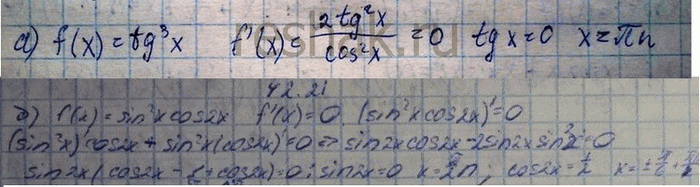 а) f(x) = tg³x f'(x) = 2tg²x / cos²x = 0 tg x = 0 x = πn
42.21
б) f(x) = sin²x cos2x f'(x) = 0 (sin²x cos2x)' = 0
(sin²x)' cos2x + sin²x (cos2x)' = 0 => sin2x cos2x - 2sin2x sin²x = 0
sin2x (cos2x - + cos2x) = 0; sin2x = 0 x = π/2 n; cos2x = 1/2 x = ± π/6 +